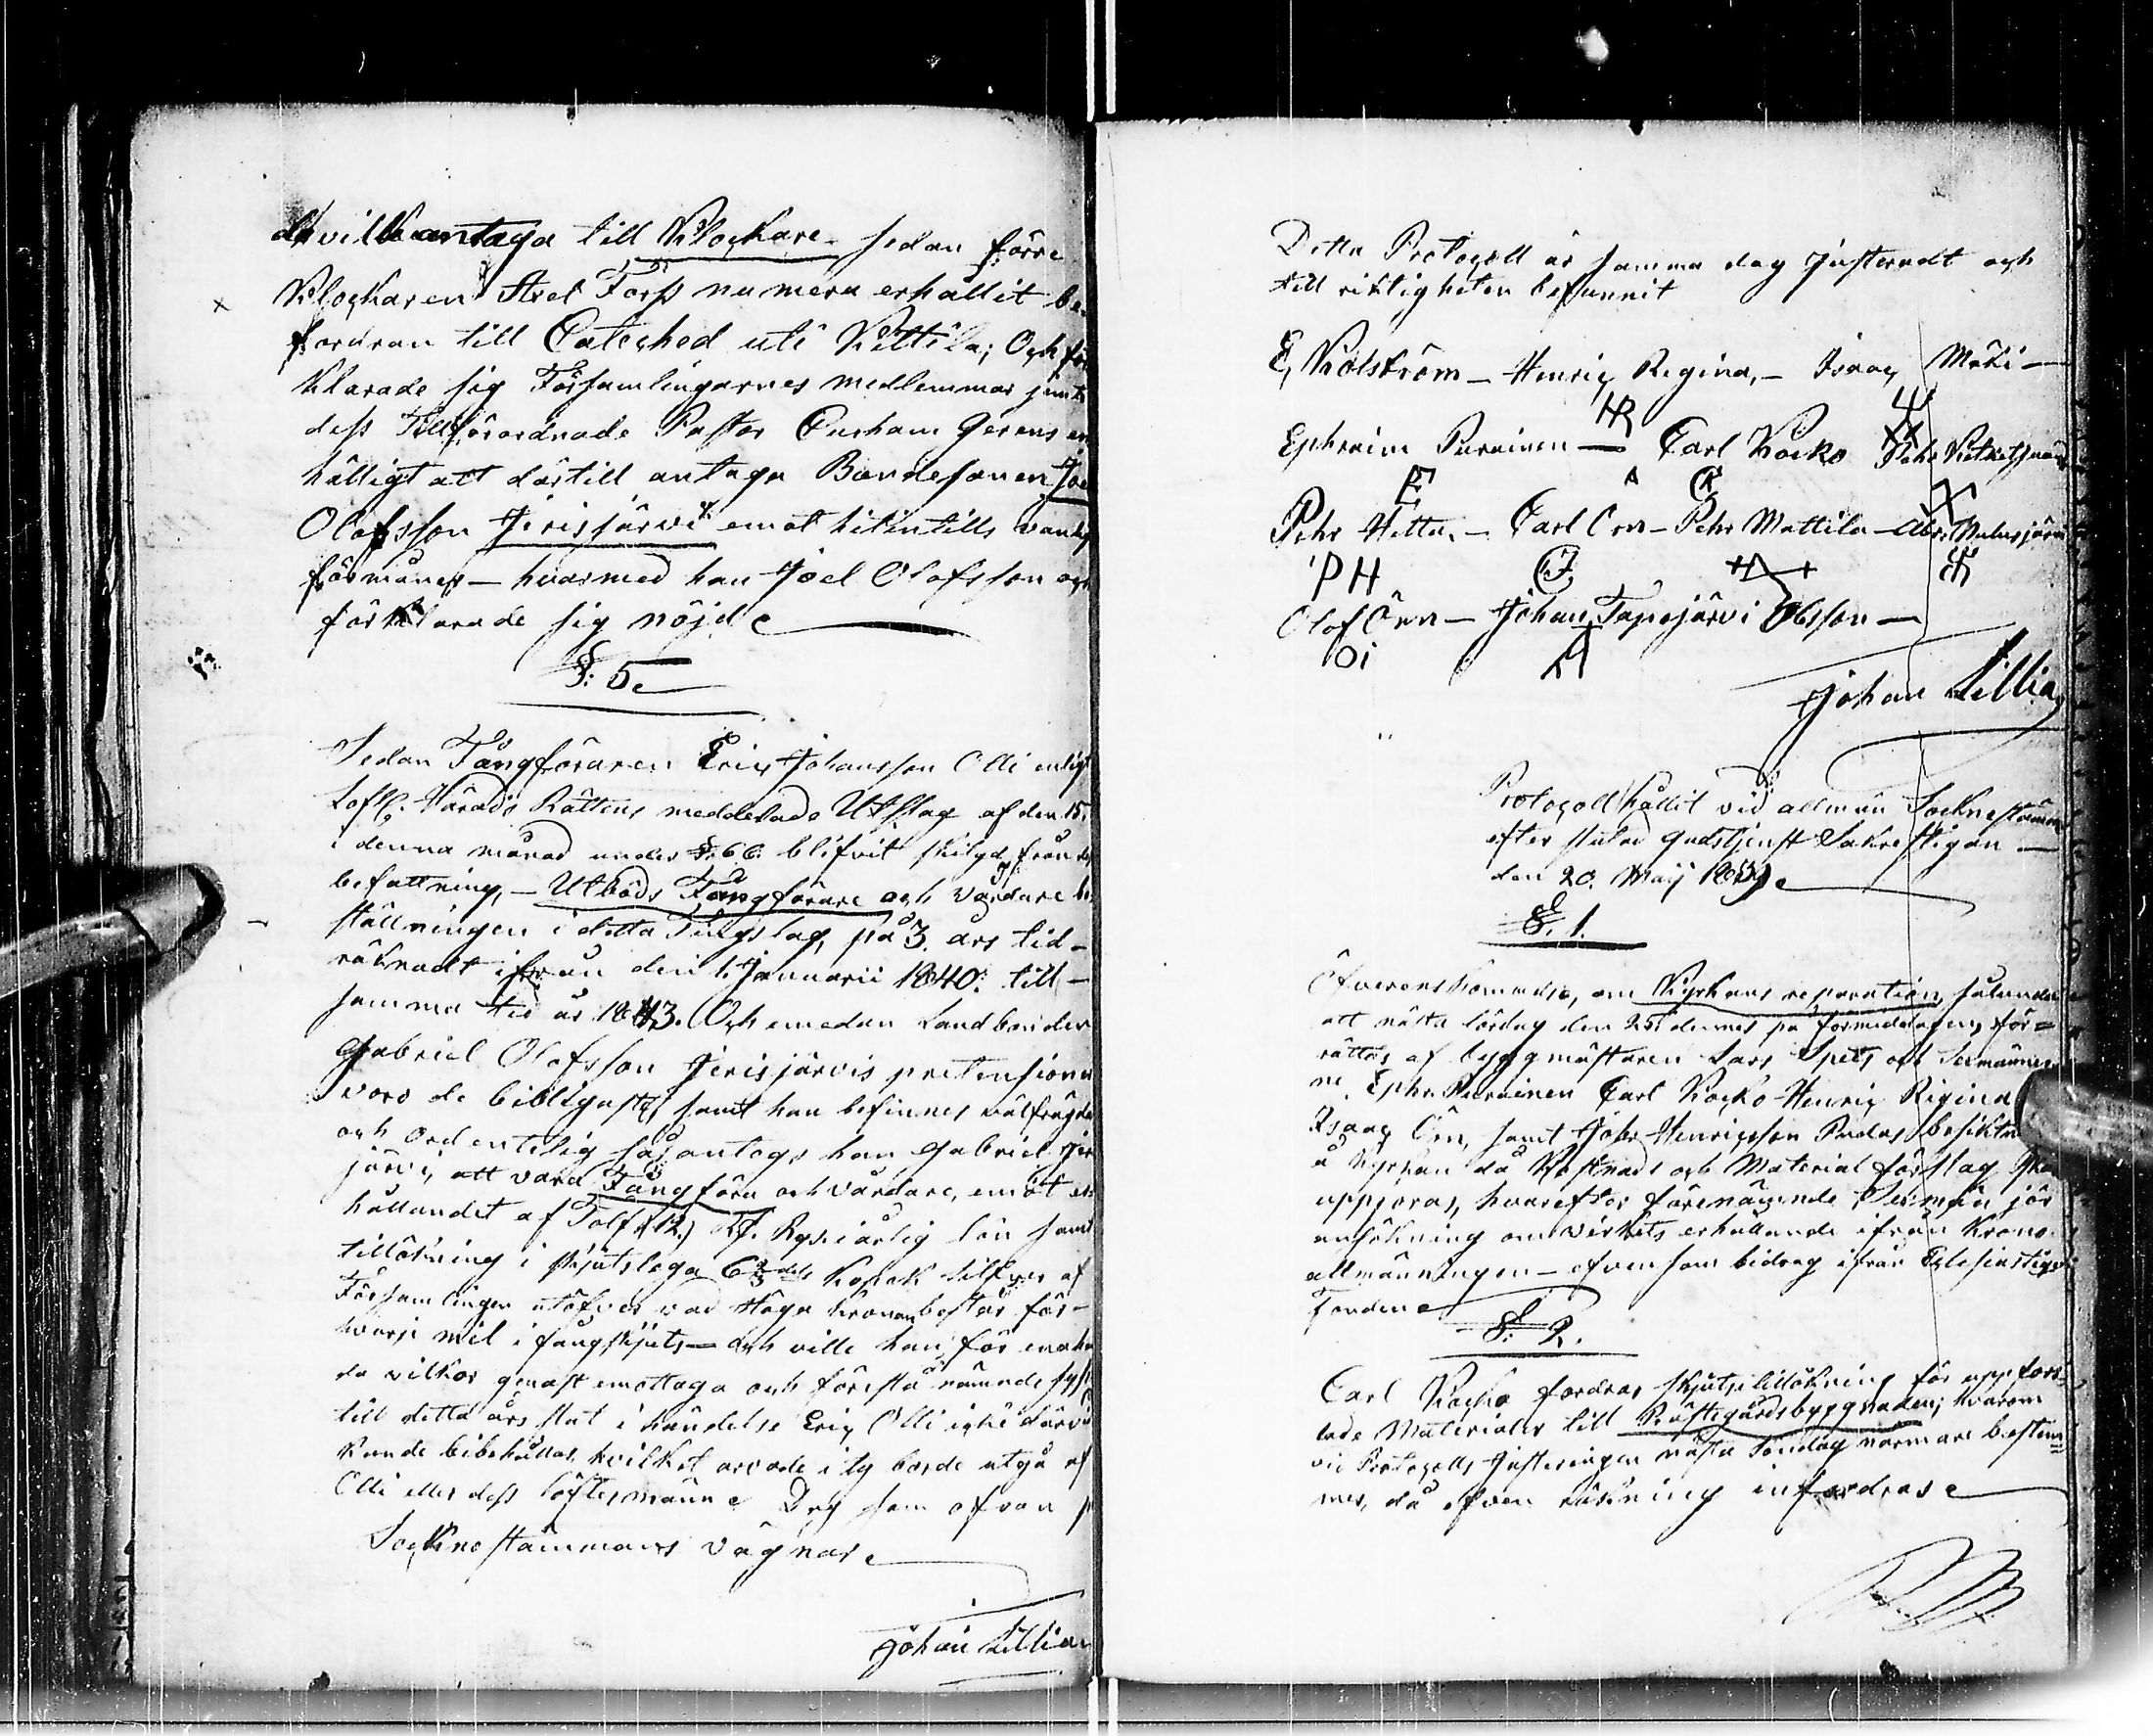 de ville antaga till Klockare sedan förre
Klockaren Axel Forss numera erhållit be-
fordran till Cateched uti Kittila; Och för
klarade sig Församlingarnes medlemmar jemte
dess Tillförordnade Pastor Durham Gerens en
hälligt att dertill antaga Bondesonen Joel
Olofsson Jerisjärvi emot hitintills vanlig
förmåner - hvarmed han Joel Olofsson och
förklarade sig nöjd
§: 5
Sedan Fångföraren Eric Johansson Olli enligt
Lofl. Härads Rättens meddelade Utslag af den 15.
i denna månad under §. 66. blifvit skilgd från
befattning, - Utböds Fångförare och Vårdare be
ställningen i detta Tingslag, på 3. års tid -
räknadt ifrån den 1. Januarii 1840: till -
samma tid år 1843. Och emedan Landbonden
Gabriel Olofsson Jerisjärvis pretensioner
voro de billigaste samt han befinnes välfrägda
och ordentelig så antogs han Gabriel Jeris
järvi, att vara Fångföra och vårdare, emot er
hållandet af Tolf (12.) Rysi årlig lön samt
tillökning i skjutslega 6 2/3 dels Kopek Silfver af
Församlingen utöfver vad Höga Kronan består för -
hvarje mil i fångskjuts - och ville han för enaha
da vilkor genast emottaga och förestå nämnde syssla
till detta års slut i händelse Eric Olli icke dervid
kunde bibehållas hvilket arvode i ty borde utgå af
Olli eller dess löftesmänn Dag som ofvan på
Sockne stämmans vägnar
Johan Lillia
Detta Protocoll är samma dag Justeradt och
till riktigheten befunnit
E, Kölström - Henric Regina, - Isaac Mäki -
HR
Ephraim Purainen - Carl Kocko Pehr Kietkes
E CK
Pehr Hetta, - Carl Örn - Pehr Mattila - Abr. Muhosjärvi
PH
Olof Örn - Johan Tapojärvi Olsson -
Oi
Johan Lillia
Protocoll hållit vid allmän Sockne stämma
efter slutad gudstjenst Sakrestigan -
den 20. Maij 1839
§. 1.
Öfverenskommelse, om Kyrkans reparation, sålunda
att nästa lördag den 25 dennes på förmiddagen, för=
rättas af byggmästaren Lars Spets och Sexmänner
ne Ephr. Purainen Carl Kocko Henric Regina
Isaac Örn, samt Johan Henricsson besiktn
å Kyrkan då Kostnads och Material förslag ska
uppjöras, hvarefter förenämnde Sexmän jör
ansökning om Virkets erhållande ifrån Krono
allmänningen - efvensom bidrag ifrån Eclesiastique
Fonden
§: 2.
Carl Kocko fordras skjutstillökning för uppfors=
lade Materialer till Prästegårdsbyggnaden; hvarom
vid Protocolls Justeringen nästa Söndag närmare bestäm=
mes, då efven räkning infordras